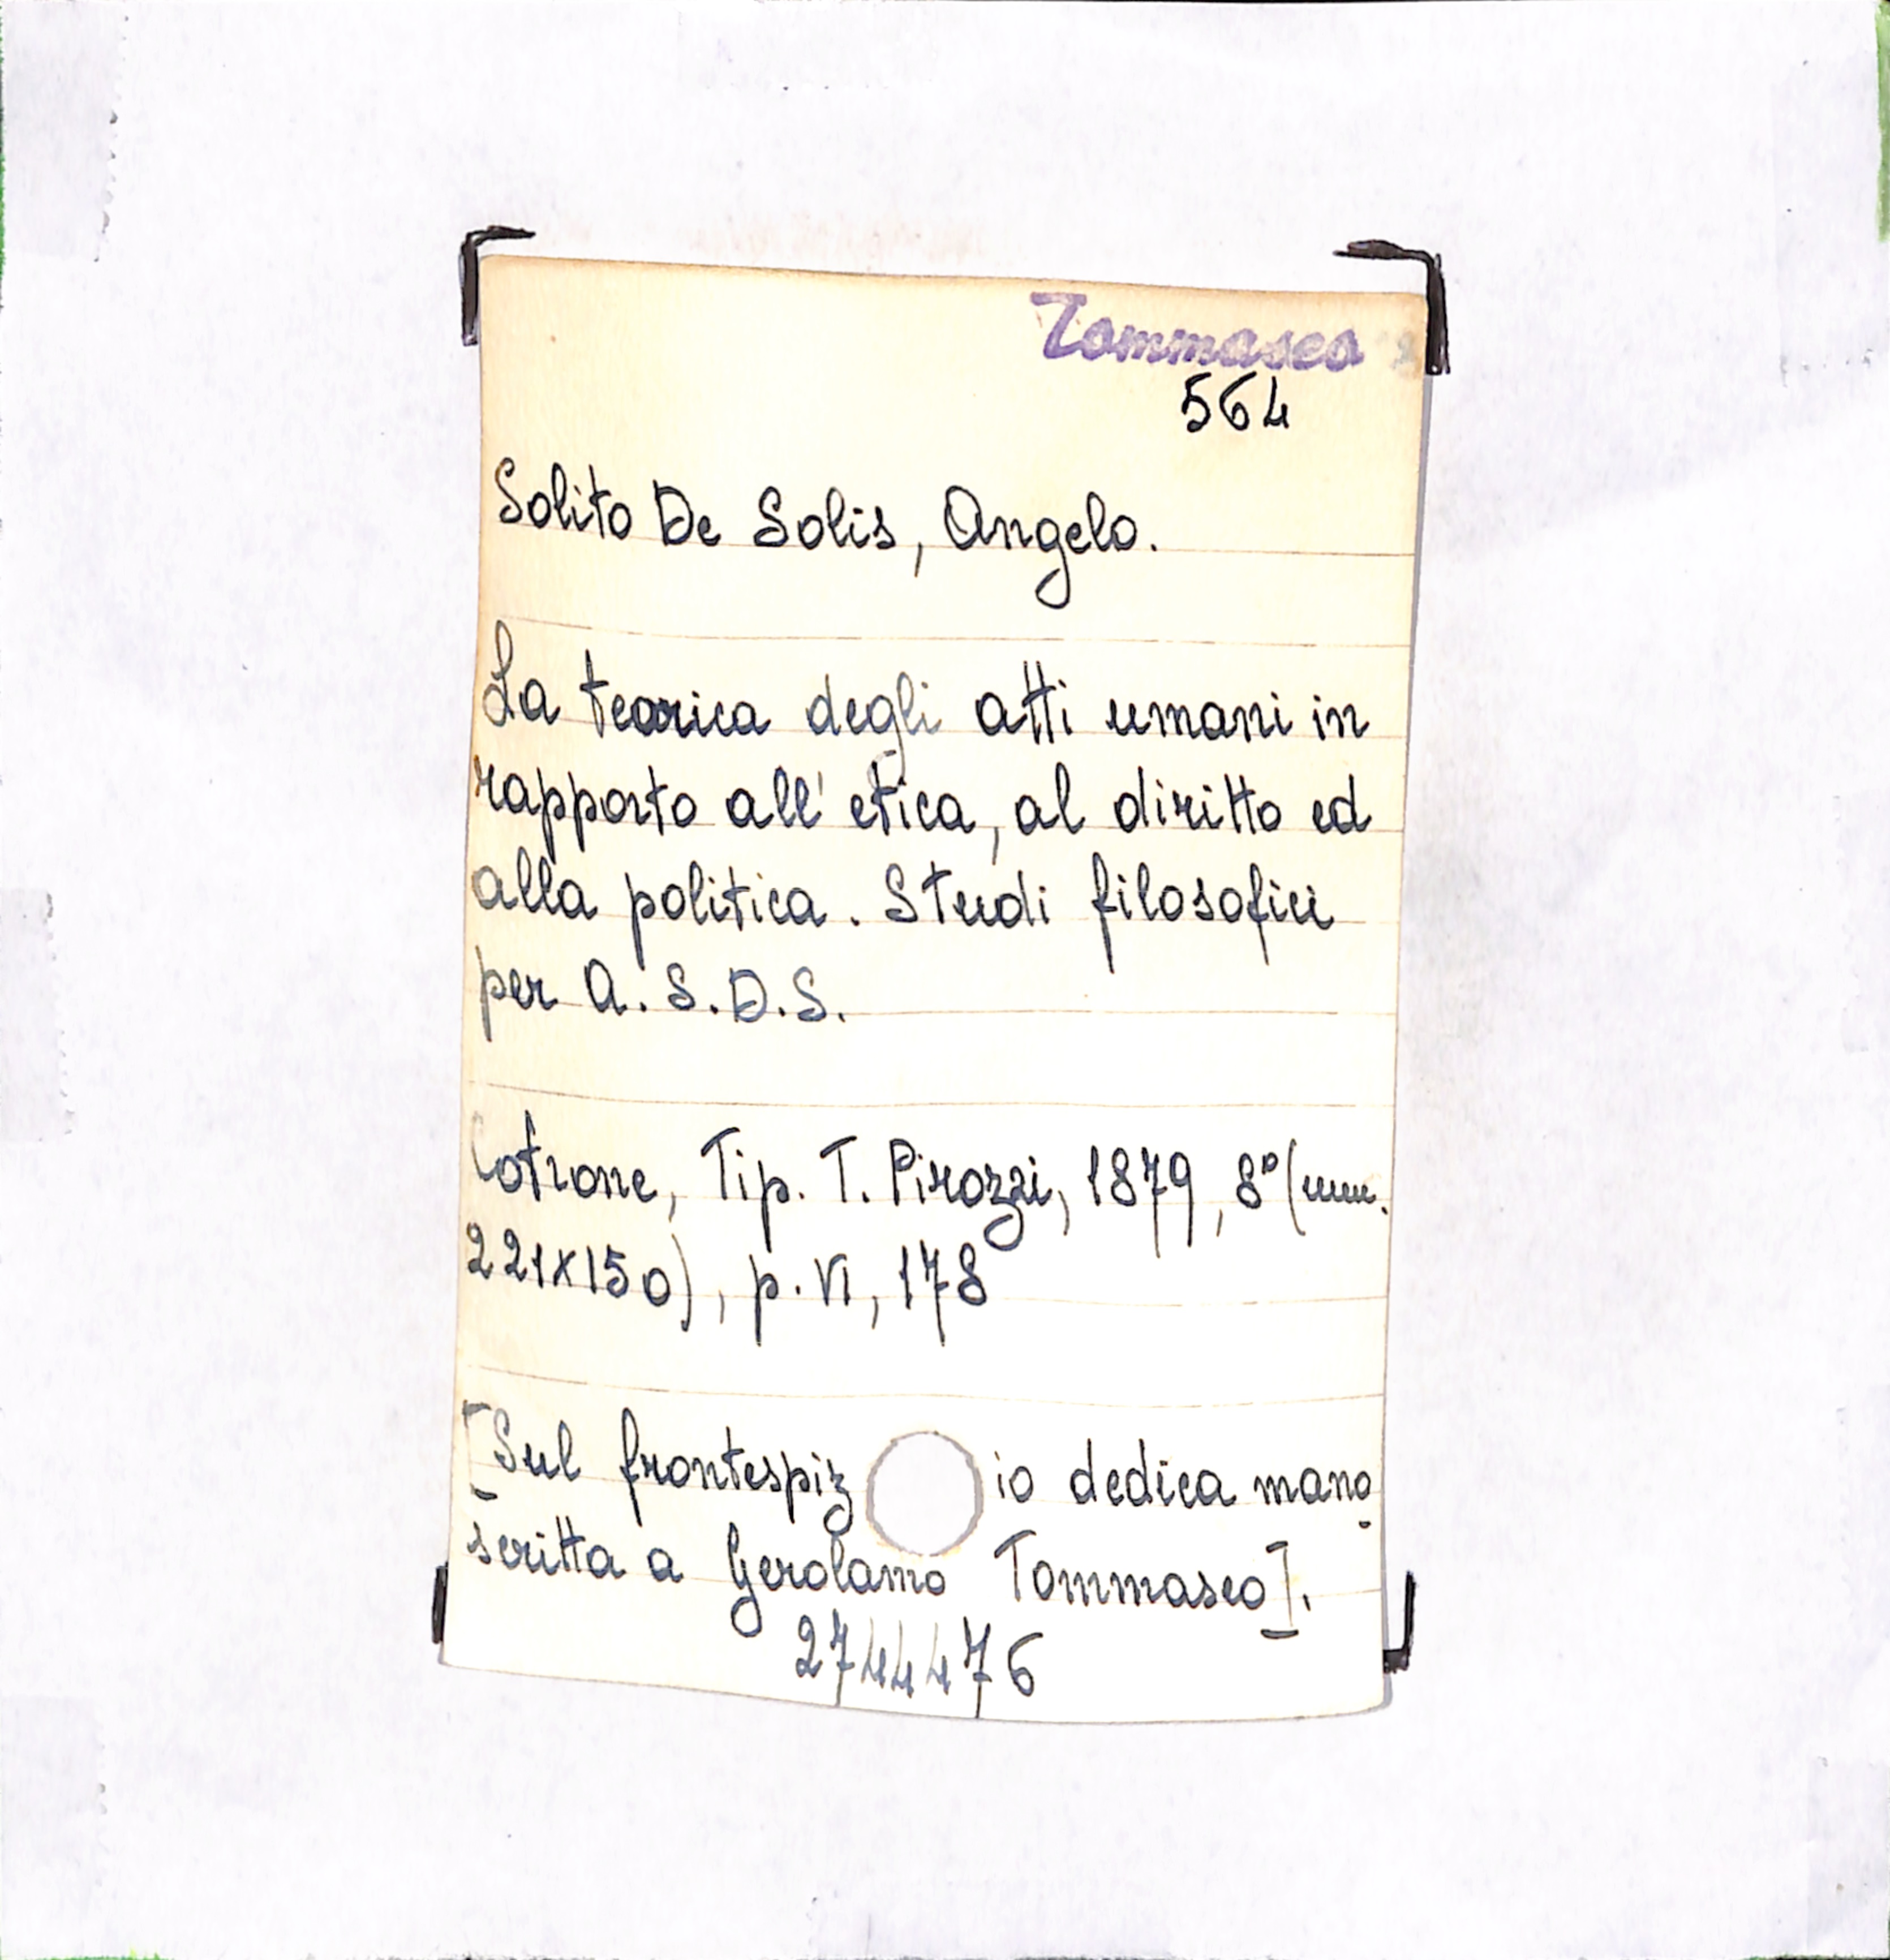 Tommaseo
564
Solito De Solis, Angelo.
La teorica degli atti umani in
rapporto all'etica, al diritto ed
alla politica. Studi filosofici
per A. S. D. S.
Cotrone, Tip. T. Pirozzi, 1879, 8° (mm.
221x150), p. VI, 178
[Sul frontespizio dedica mano
scritta a Gerolamo Tommaseo].
2744476